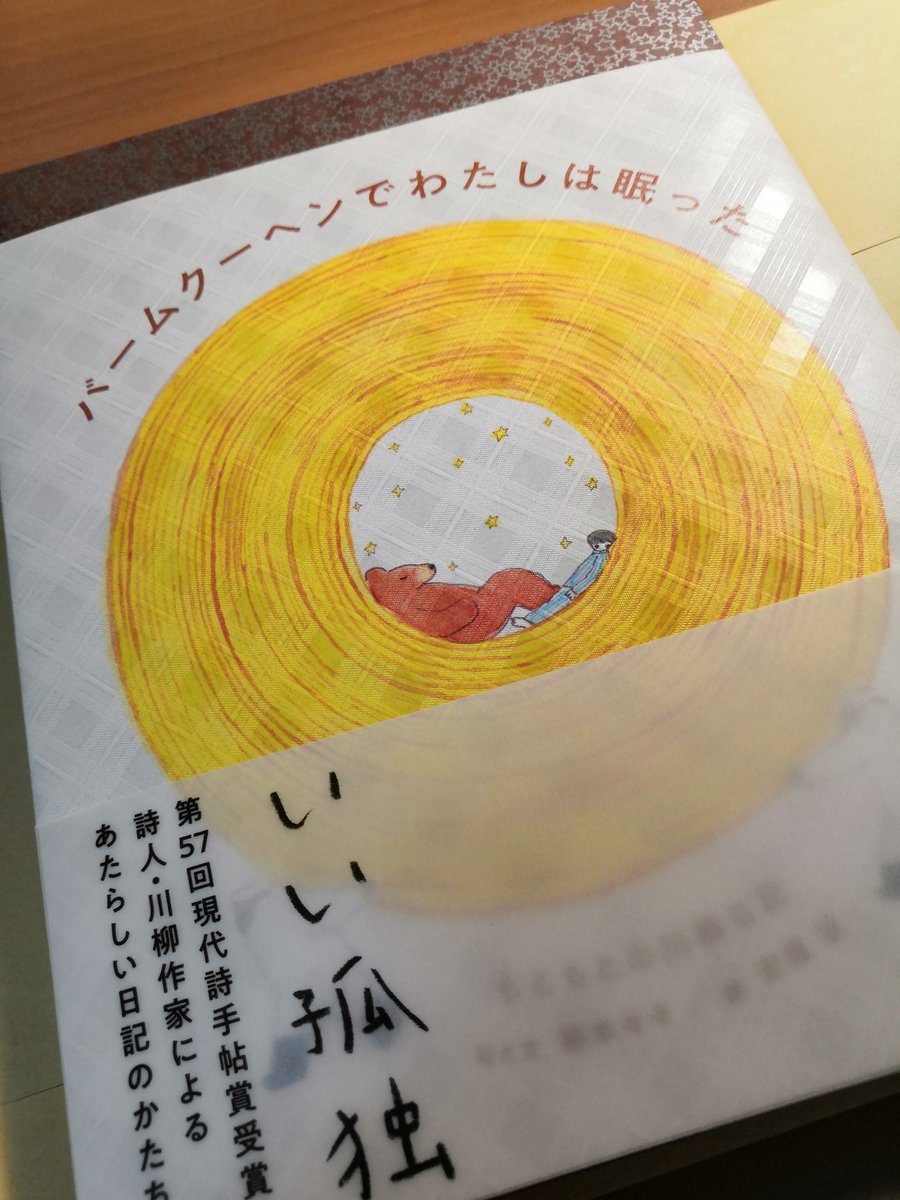 バームクーヘンでわたしは眠った
いい孤独
第57回現代詩手帖賞受賞
詩人・川柳作家による
あたらしい日記のかたち